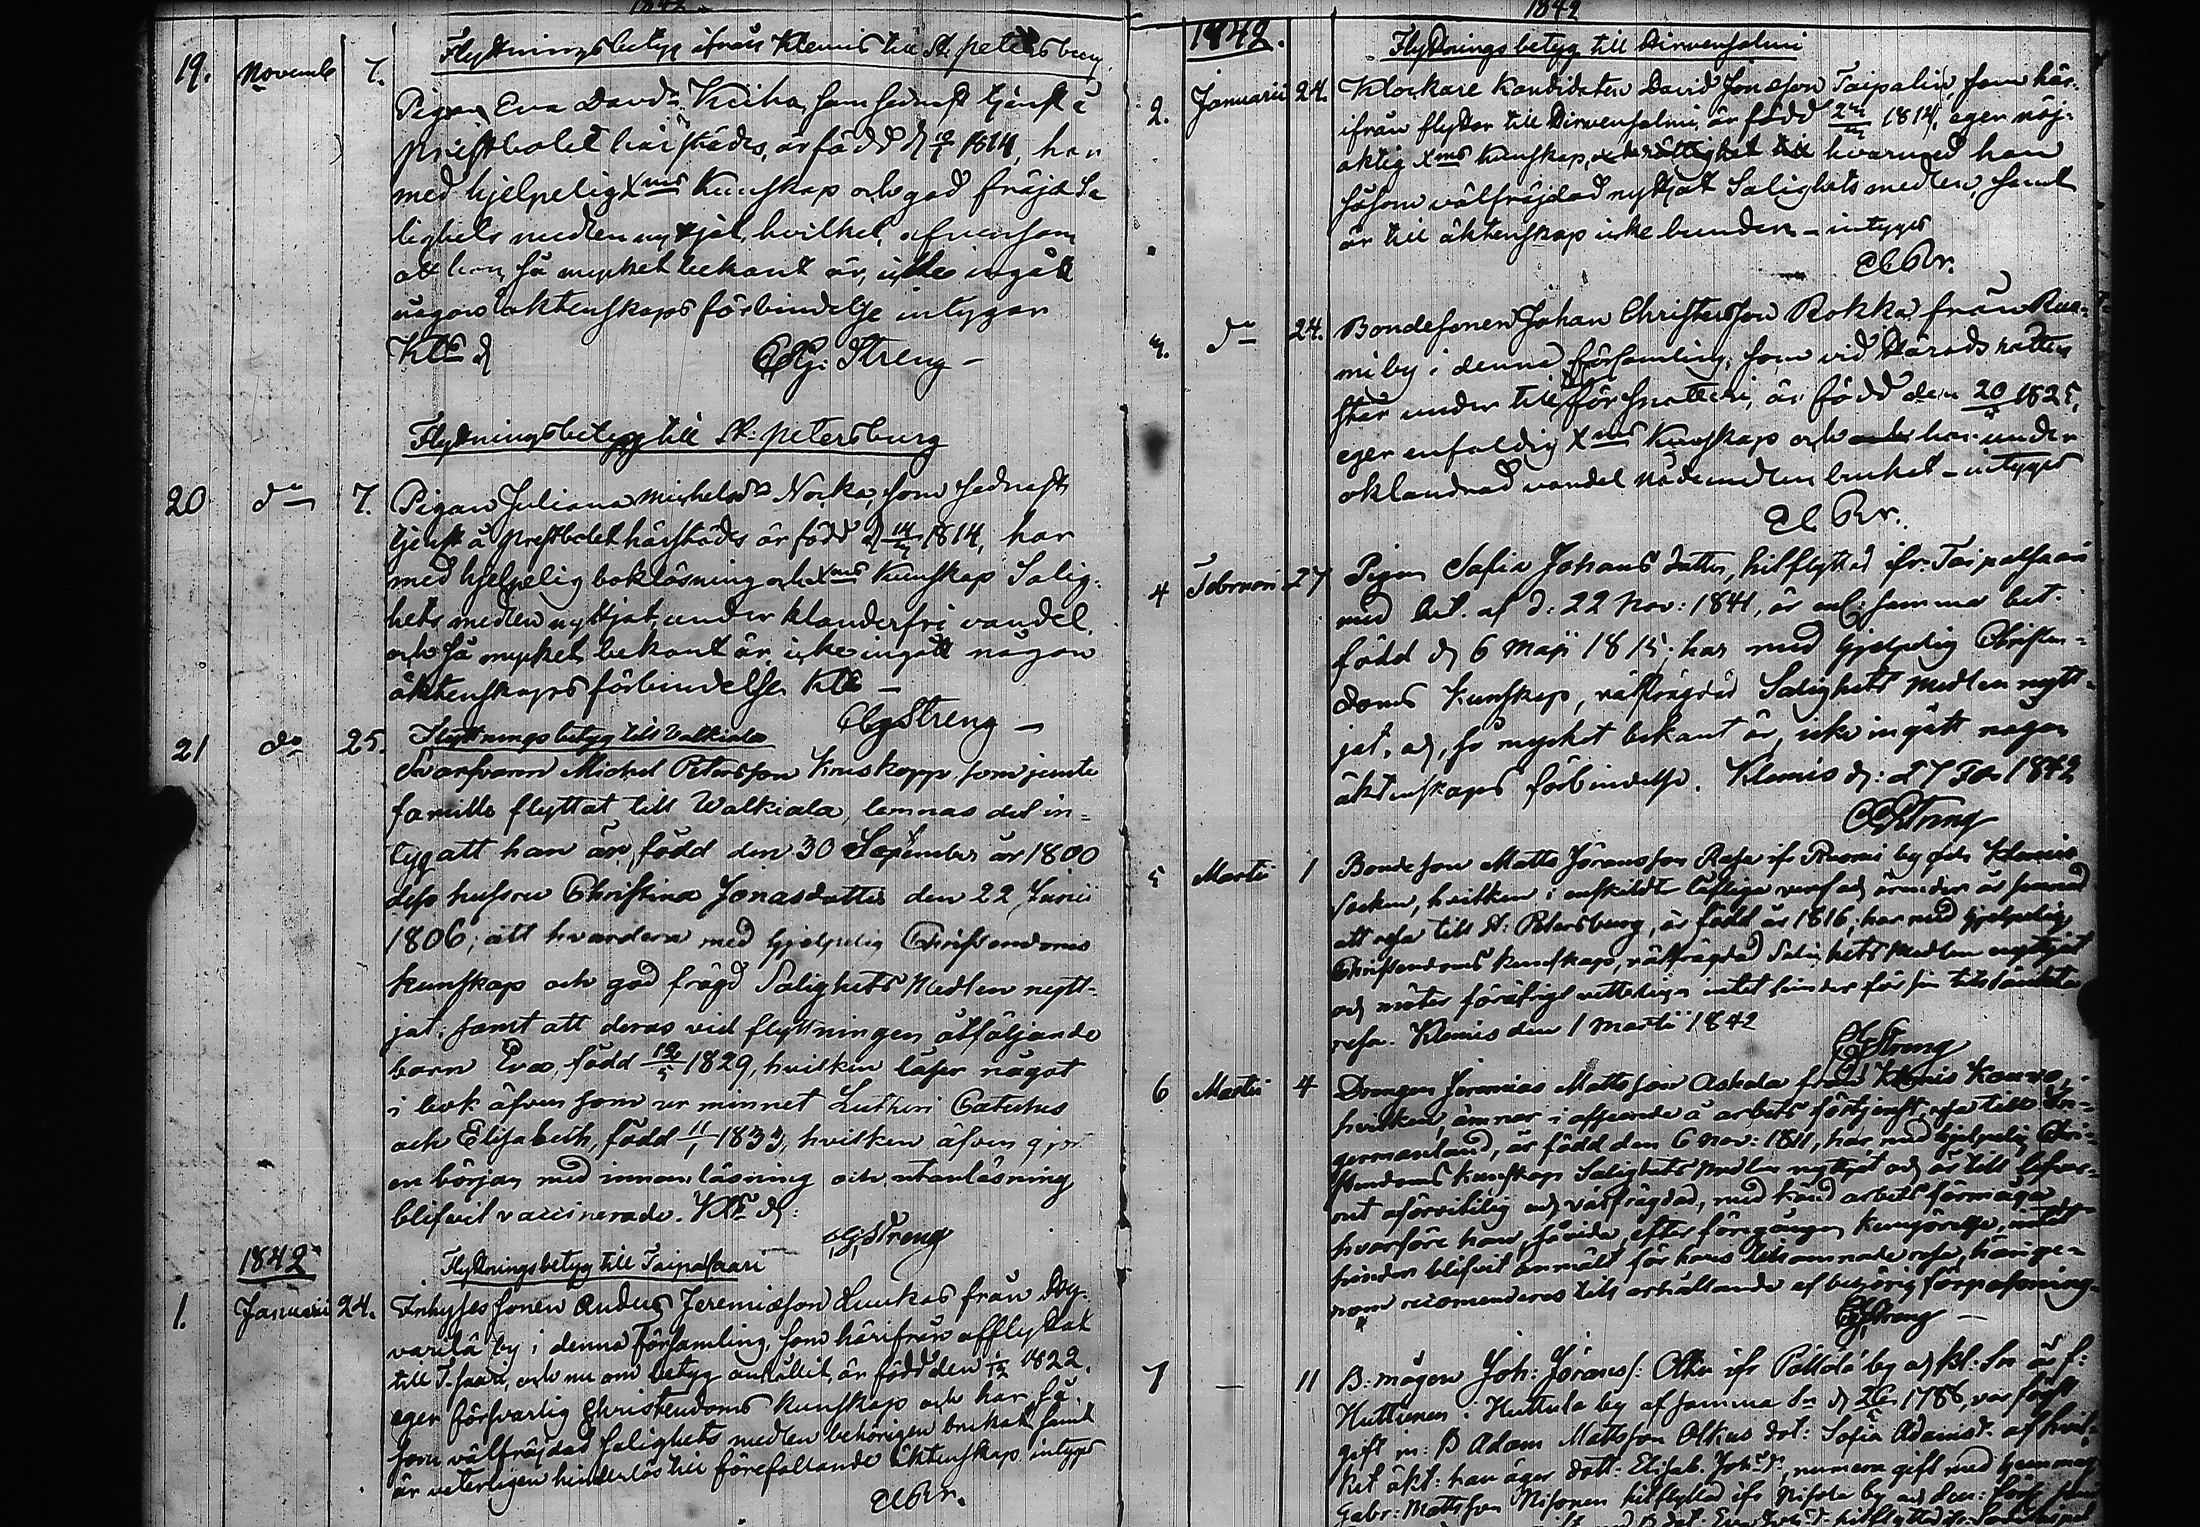 1842
Flyttningsbetyg ifrån Klemis till St. petersburg
19. Novemb 7.
Pigan Eva Davds Kuiha, som sednast tjenst å
prestbolet härstädes, är född d 1814, har
med hjelpelig Xnds Kunskap och god fräjd Sa
lighets medlen nyttjat, hvilket äfvensom
att hon, så mycket bekant är, icke ingått
någons äktenskaps förbindelse intygar
Klls d
Streng –
Flyttningsbetyg till St. petersburg
20 do 7. Pigan Juliana michelsdr Norka, som sednast
tjenst å prestbolet härstädes är född d 1814, har
med hjelpelig bokläsning och Xnds Kunskap Salig-
hets medlen nyttjat under klanderfri vandel,
och så mycket bekant är icke ingått någon
äktenskaps förbindelse Klls –
Streng –
Flyttningsbetyg till Valkiala
21 do 25. Svarfvaren Michel Petersson Kruskopp som jemte
famille flyttat till Walkiala, lemnas det in-
tyg att han är född den 30 September år 1800
dess hustru Christina Jonasdotter den 22 Junii
1806; att hvardera med hjelpelig Christendoms
kunskap och god frägd Salighets Medlen nytt-
jat, samt att deras vid flyttningen åtföljande
barn Eva, född 1829, hvilken läser något
i bok äfven som ur minnet Lutheri Cateches
och Elisabeth, född 11/1 1833, hvilken äfven gjort
en början med innanläsning och utanläsning
blifvit vaccinerade. Klls d:
Streng
1842
Flyttningsbetyg till Taipalsaari
1. Januarii 24. Inhyses sonen Anders Jeremiæson Luukas från
varila by i denna Församling, som härifrån afflyttat
till T. saari, och nu om betyg anhållit är född den 1822,
eger försvarlig Christendoms Kunskap och har så-
som välfräjdad salighets medlen behörigen brukat samt
är veterligen hinderlös till förefallande äktenskap intygs

1842
1842.
Flyttningsbetyg till Hirvensalmi
2. Januarii 24. Klockare Kandidaten David Jonæson Taipalin, som här-
ifrån flyttar till Hirvensalmi, är född 1814, eger nöj-
aktig Xnds Kunskap, hvarmed han
såsom välfräjdad nyttjat Salighetsmedlen, samt
är till äktenskap icke bunden – intygs
3. do 24. Bondesonen Johan Christersson Rokka från Ruo-
mi by i denna församling, som vid Härads rätten
står under till för snatteri, är född den 20 1825,
eger enfaldig Xnds Kunskap och har under
oklandrad vandel nådemedlen brukat – intygs
4 Februari 27 Pigan Sofia Johans dotter, hitflyttad ifr. Taipalsaari
med bet. af d: 22 Nov: 1841, är enl: samma bet.
född d 6 Maji 1815; har med hjelpelig Christen-
doms Kunskap, välfrägdad Salighets medlen nytt-
jat, och, så mycket bekant är, icke ingått någon
äktenskaps förbindelse. Klemis d: 27 Feb 1842
Streng
5 Martii 1 Bondeson Matts Jöransson Rasa ifr Ruomi by och Klemis
socken, hvilken i enskildt lofliga värf och ärender är sinnad
att resa till St: Petersburg, är född år 1816, har med hjelpelig
Christendoms kunskap, välfrägdad Salighets Medlen nyttjat
och möter föröfrigt vetterligen intet hinder för sin tilltänkta
resa. Klemis den 1 Martii 1842
Streng
6 Martii 4 Drengen Jeremias Mattsson Askola från Klemis
hvilken, ämnar i afseende å arbets förtjenst, resa till In-
germanland, är född den 6 Nov: 1811, har med hjelpelig Chri-
stendoms kunskap Salighets medlen nyttjat och är till lefver-
net oförvitlig och välfrägdad, med känd arbets förmåga
hvarföre han, såvida, efter föregången kungörelse, intet
hinder blifvit anmält för hans tillernnade resa, härige-
nom recomenderas till erhållande af behörig förpassning
Streng –
7 – 11 B: mågen Joh: Jöranss: Olku ifr Pottola by och Kl: Sn är f:
Huttunen i Huttula by af samma Sn d 1786, var först
gift m: B Adam Mattsson Olkus dot: Sofia Adamsd: af hvil-
ket äkt: han äger dott: Elisab. Johsdr, numera gift med hemmåg
Gabr: Mattsson Nisonen hitflyttad ifr Nisola by